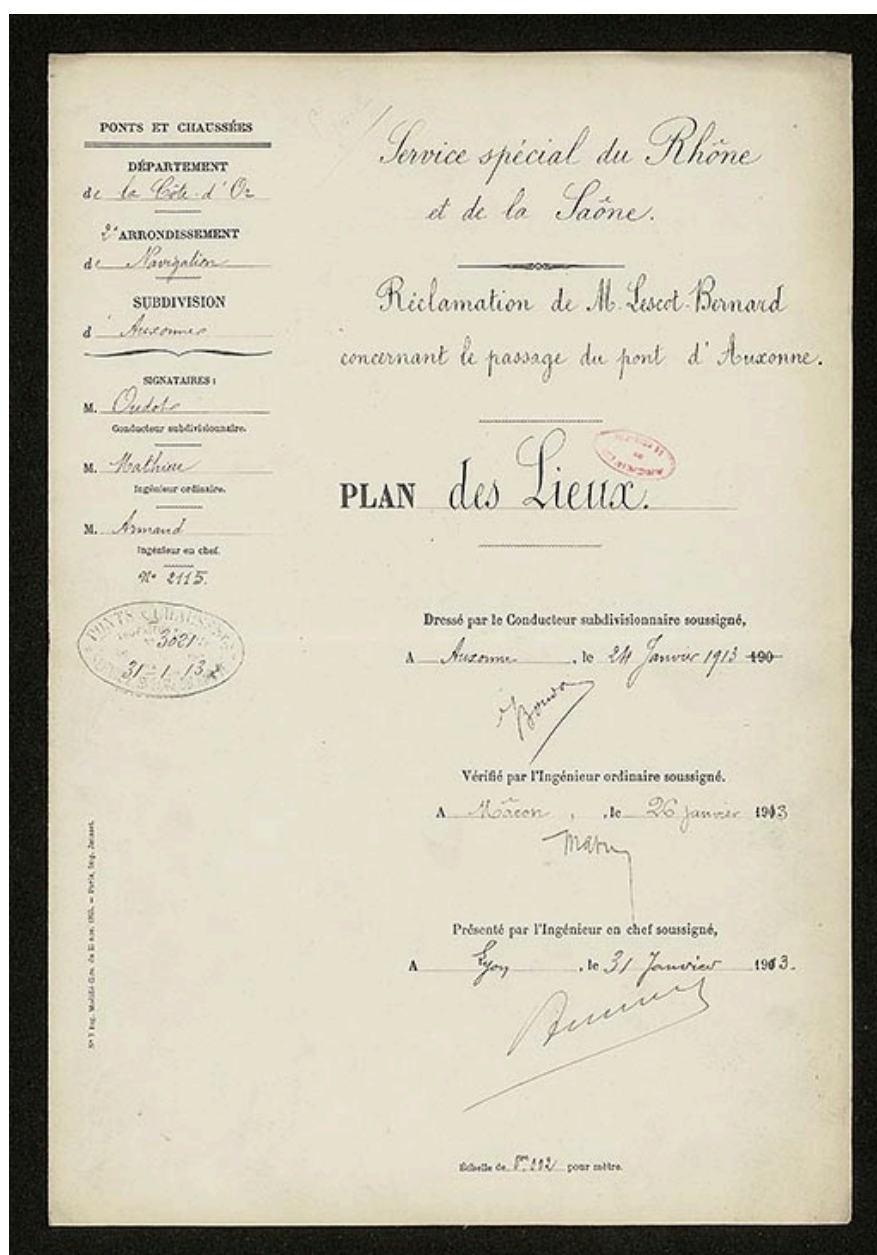 PONTS ET CHAUSSÉES
DÉPARTEMENT
de la Côte-d'Or
2e ARRONDISSEMENT
de Navigation
SUBDIVISION
d'Auxonne
SIGNATAIRES :
M. Oudot
Conducteur subdivisionnaire.
M. Mathieu
Ingénieur ordinaire.
M. Armand
Ingénieur en chef.
N° 2115.
PONTS & CHAUSSÉES
3021
31-1-13
Service spécial du Rhône
et de la Saône.
Réclamation de M. Lescot-Bernard
concernant le passage du pont d'Auxonne.
PLAN des Lieux.
Dressé par le Conducteur subdivisionnaire soussigné,
A Auxonne, le 24 Janvier 1913 190
Vérifié par l'Ingénieur ordinaire soussigné.
A Mâcon, le 26 janvier 1913
Présenté par l'Ingénieur en chef soussigné,
A Lyon, le 31 Janvier 1913.
Échelle de pour mètre.